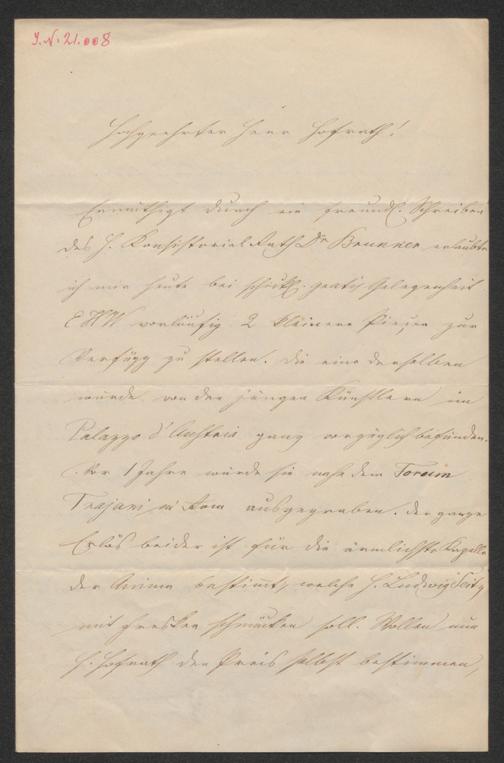 I.N. 21.008
Hochgeehrter Herr Hofrath!
Ermuthigt durch ein freundl. Schreiben
des H. Konsistorial Rath Dr Brunner erlaubte
ich mir heute bei schickl. gratis Gelegenheit
EHW vorläufig 2 kleinere Piezen zur
Verfügg zu stellen. Die eine derselben
wurde von den jungen Künstlern im
Palazzo d'Austria ganz vorzüglich befunden.
Vor 1 Jahre wurde sie nahe dem Forum
Trajani in Rom ausgegraben. Der ganze
Erlös beider ist für die ärmlichste Kapelle
der Anima bestimmt, welche H. Ludwig Seitz
mit Fresken schmücken soll. Wollen nun
H. Hofrath den Preis selbst bestimmen,